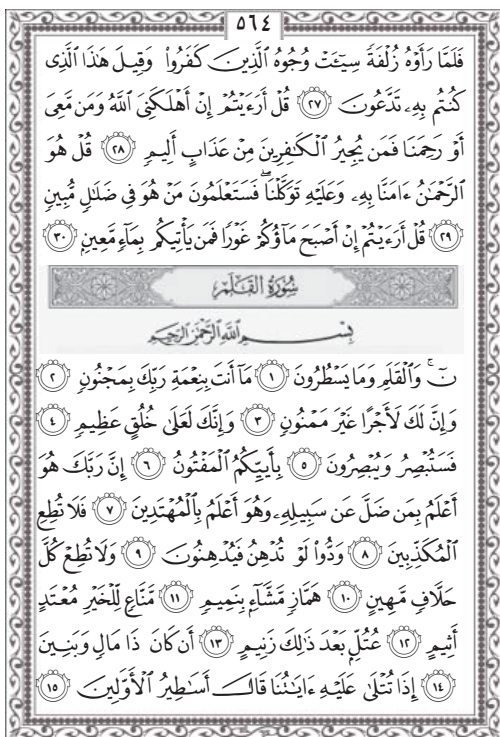 ٥٦٤
فَلَمَّا رَأَوْهُ زُلْفَةً سِيٓـَٔتْ وُجُوهُ ٱلَّذِينَ كَفَرُواْ وَقِيلَ هَٰذَا ٱلَّذِى
كُنتُم بِهِۦ تَدَّعُونَ ٢٧ قُلْ أَرَءَيْتُمْ إِنْ أَهْلَكَنِىَ ٱللَّهُ وَمَن مَّعِىَ
أَوْ رَحِمَنَا فَمَن يُجِيرُ ٱلْكَٰفِرِينَ مِنْ عَذَابٍ أَلِيمٍ ٢٨ قُلْ هُوَ
ٱلرَّحْمَٰنُ ءَامَنَّا بِهِۦ وَعَلَيْهِ تَوَكَّلْنَا ۖ فَسَتَعْلَمُونَ مَنْ هُوَ فِى ضَلَٰلٍ مُّبِينٍ
٢٩ قُلْ أَرَءَيْتُمْ إِنْ أَصْبَحَ مَآؤُكُمْ غَوْرًا فَمَن يَأْتِيكُم بِمَآءٍ مَّعِينٍۭ ٣٠
سُورَةُ القَلَمِ
بِسْمِ ٱللَّهِ ٱلرَّحْمَٰنِ ٱلرَّحِيمِ
نٓ ۚ وَٱلْقَلَمِ وَمَا يَسْطُرُونَ ١ مَآ أَنتَ بِنِعْمَةِ رَبِّكَ بِمَجْنُونٍ ٢
وَإِنَّ لَكَ لَأَجْرًا غَيْرَ مَمْنُونٍ ٣ وَإِنَّكَ لَعَلَىٰ خُلُقٍ عَظِيمٍ ٤
فَسَتُبْصِرُ وَيُبْصِرُونَ ٥ بِأَييِّكُمُ ٱلْمَفْتُونُ ٦ إِنَّ رَبَّكَ هُوَ
أَعْلَمُ بِمَن ضَلَّ عَن سَبِيلِهِۦ وَهُوَ أَعْلَمُ بِٱلْمُهْتَدِينَ ٧ فَلَا تُطِعِ
ٱلْمُكَذِّبِينَ ٨ وَدُّواْ لَوْ تُدْهِنُ فَيُدْهِنُونَ ٩ وَلَا تُطِعْ كُلَّ
حَلَّافٍ مَّهِينٍ ١٠ هَمَّازٍ مَّشَّآءٍۭ بِنَمِيمٍ ١١ مَّنَّاعٍ لِّلْخَيْرِ مُعْتَدٍ
أَثِيمٍ ١٢ عُتُلٍّۭ بَعْدَ ذَٰلِكَ زَنِيمٍ ١٣ أَن كَانَ ذَا مَالٍ وَبَنِينَ
١٤ إِذَا تُتْلَىٰ عَلَيْهِ ءَايَٰتُنَا قَالَ أَسَٰطِيرُ ٱلْأَوَّلِينَ ١٥